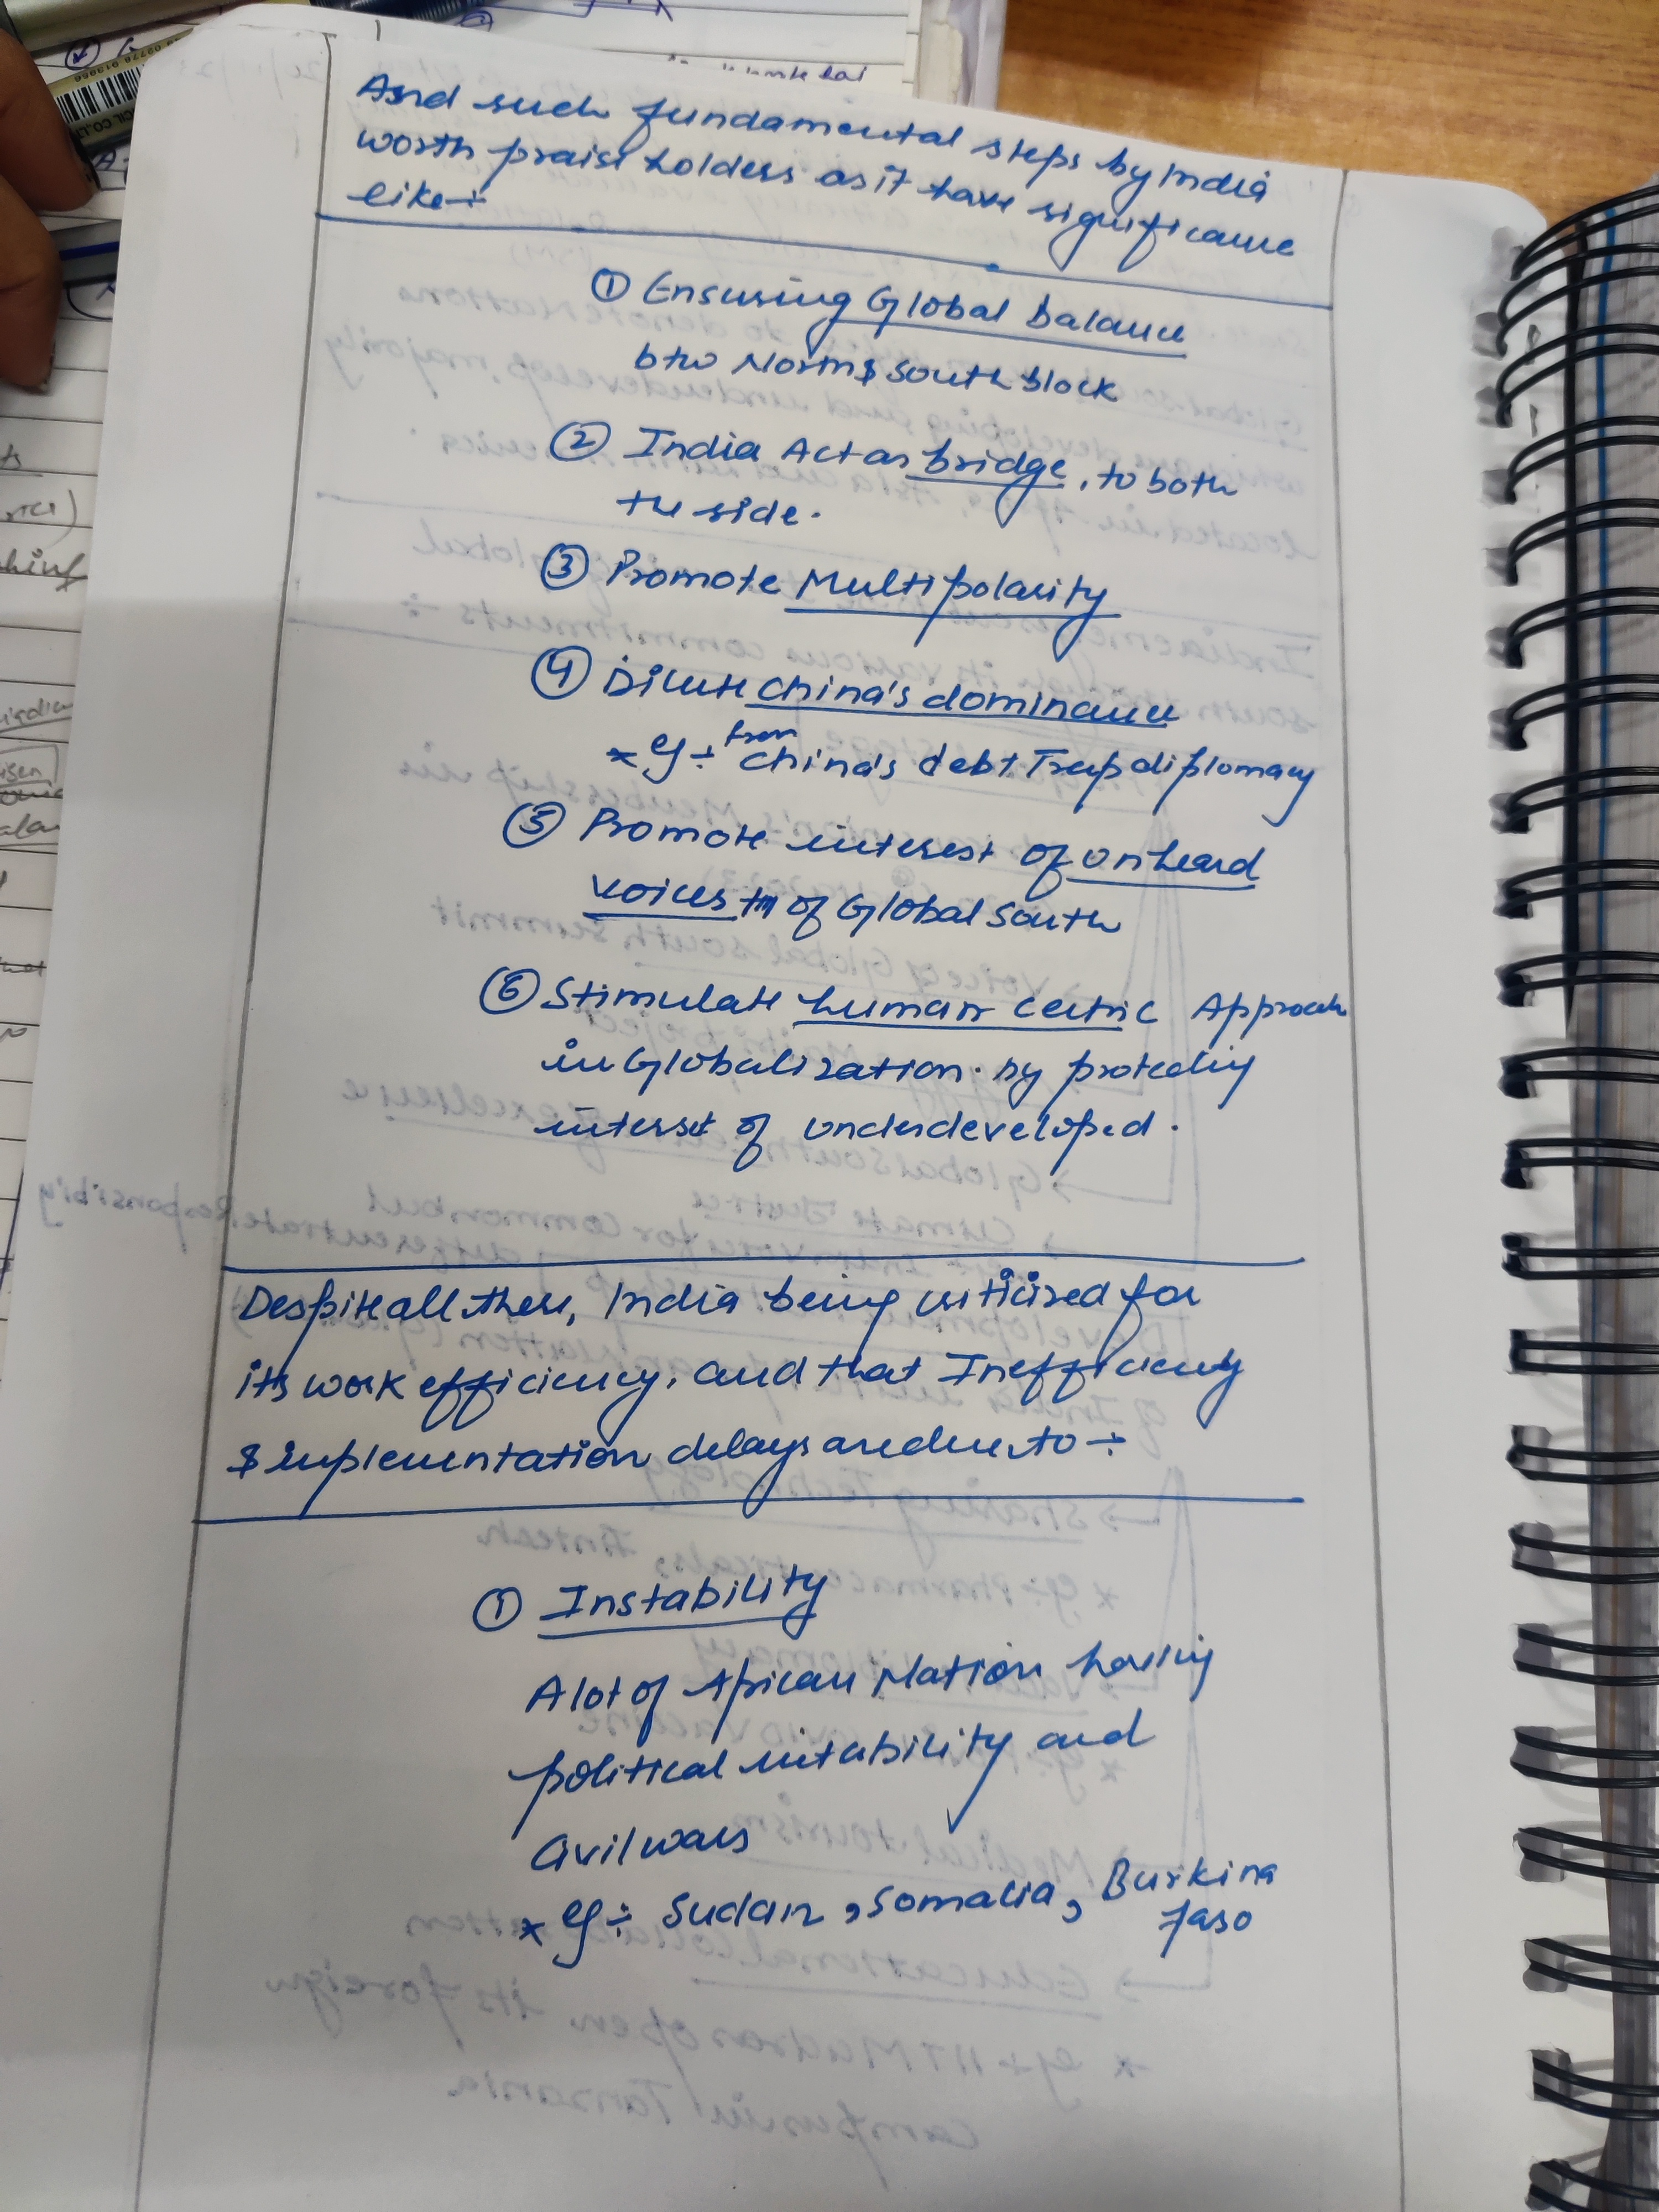 And such fundamental steps by India
worth praise holders as it have significance
like ÷
① Ensuring Global balance
btw North & South block
② India Act as bridge, to both
the side.
③ Promote Multipolarity
④ Dilute China's dominance
* eg ÷ from China's debt Trap diplomacy
⑤ Promote interest of unheard
voices of Global South
⑥ Stimulate human centric Approach
in Globalization. by protecting
interest of underdeveloped.
Despite all these, India being criticized for
its work efficiency, and that Inefficiency
& implementation delays are due to ÷
① Instability
A lot of African Nation having
political instability and
Civil wars
* eg ÷ Sudan, Somalia, Burkina
faso